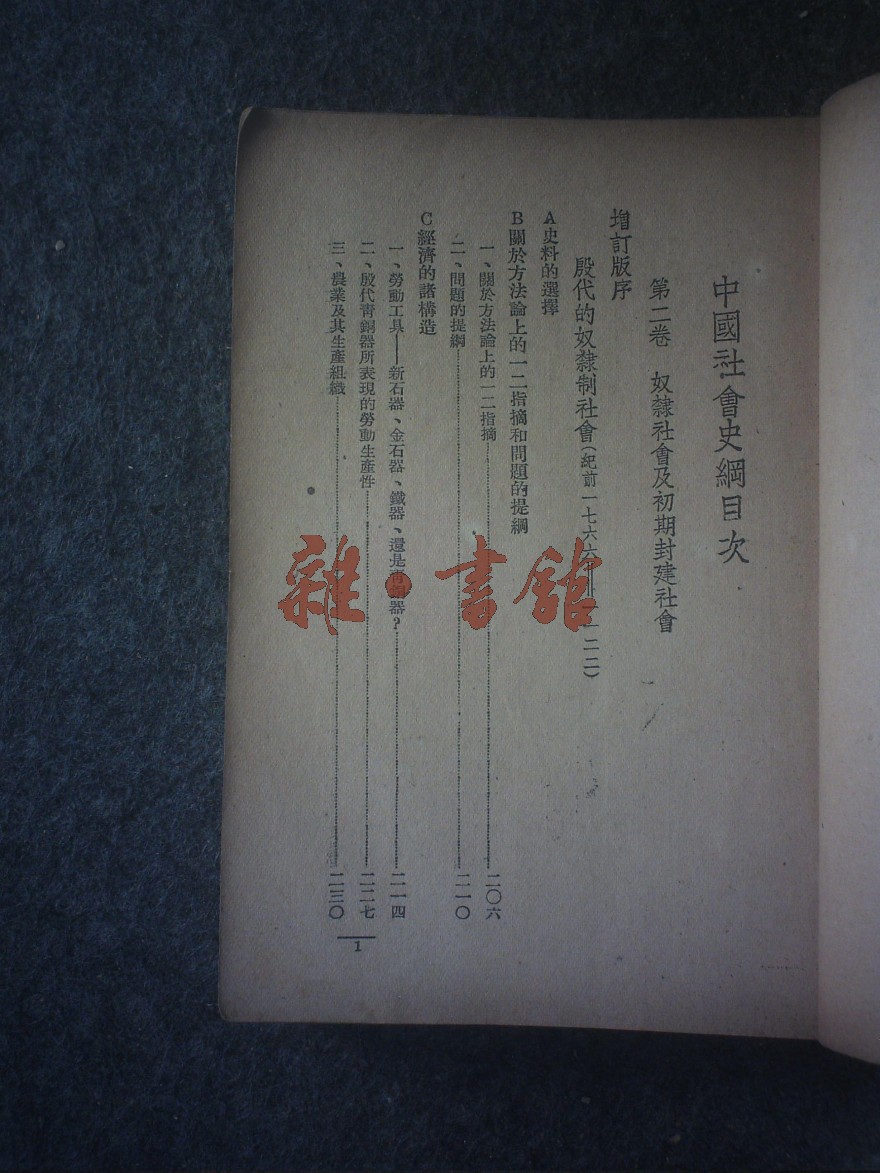 中國社會史綱目次
第二卷 奴隸社會及初期封建社會
增訂版序
殷代的奴隸制社會(紀前一七六六——一一二二)
A史料的選擇
B關於方法論上的一二指摘和問題的提綱
一、關於方法論上的一二指摘……二〇六
二、問題的提綱……二一〇
C經濟的諸構造
一、勞動工具——新石器、金石器、鐵器、還是青銅器?……二一四
二、殷代青銅器所表現的勞動生產性……二二七
三、農業及其生產組織……二三〇
1
雜·書館